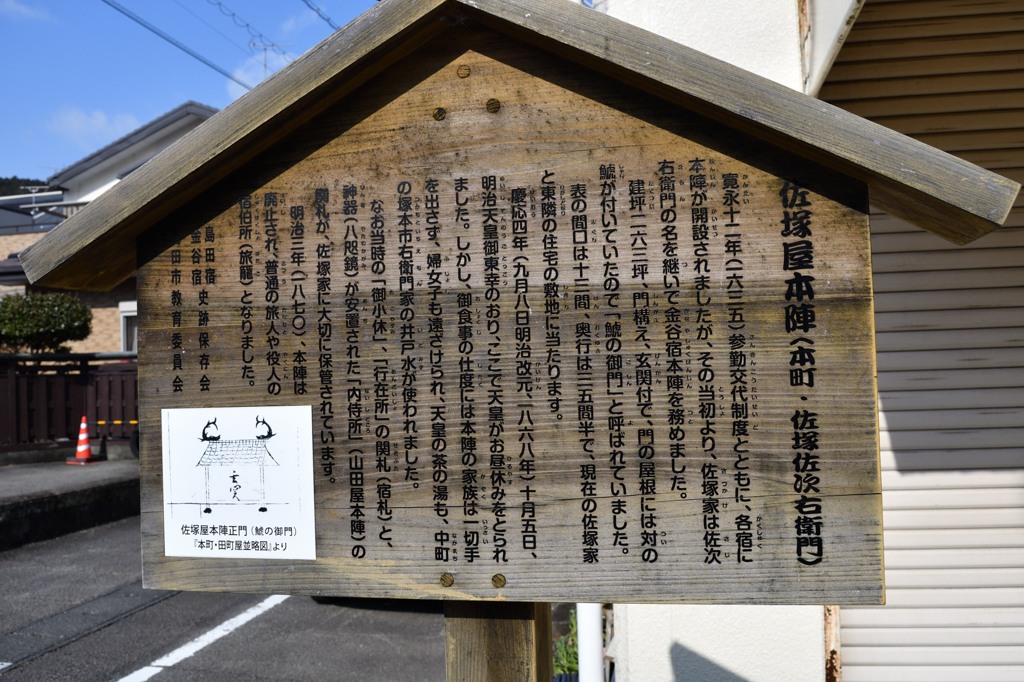 佐塚屋本陣（本町・佐塚佐次右衛門）
寛永十二年（一六三五）参勤交代制度とともに、各宿に
本陣が開設されましたが、その当初より、佐塚家は佐次
右衛門の名を継いで金谷宿本陣を務めました。
建坪二六三坪、門構え、玄関付で、門の屋根には対の
鯱が付いていたので「鯱の御門」と呼ばれていました。
表の間口は十三間、奥行は三五間半で、現在の佐塚家
と東隣の住宅の敷地に当たります。
慶応四年（九月八日明治改元、一八六八年）十月五日、
明治天皇御東幸のおり、ここで天皇がお昼休みをとられ
ました。しかし、御食事の仕度には本陣の家族は一切手
を出さず、婦女子も遠ざけられ、天皇の茶の湯も、中町
の塚本市右衛門家の井戸水が使われました。
なお当時の「御小休」、「行在所」の関札（宿札）と、
神器「八咫鏡」が安置された「内侍所」（山田屋本陣）の
関札が、佐塚家に大切に保管されています。
明治三年（一八七〇）、本陣は
廃止され、普通の旅人や役人の
宿泊所（旅籠）となりました。
島田宿
金谷宿 史跡保存会
島田市教育委員会
佐塚屋本陣正門（鯱の御門）
『本町・田町屋並略図』より